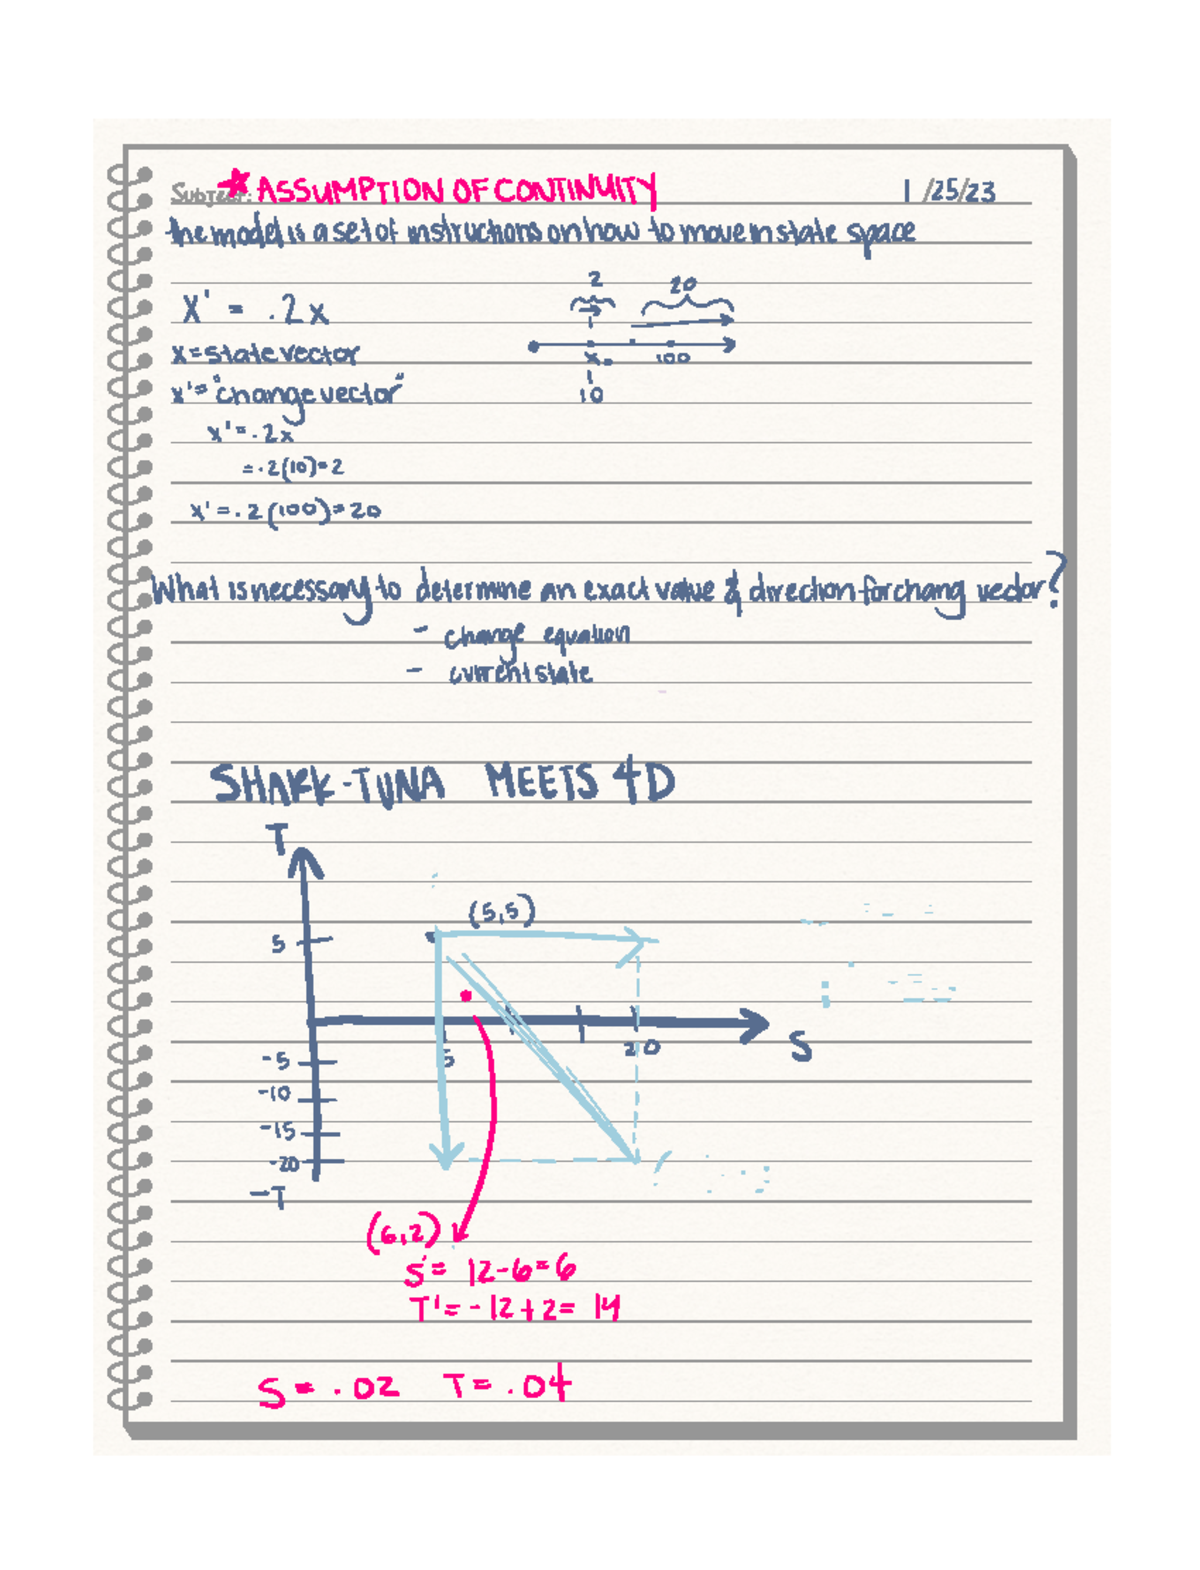 Subject: * ASSUMPTION OF CONTINUITY 1/25/23
the model is a set of instructions on how to move in state space
X' = .2x
2 20
x = state vector
x. 100
x' = "change vector"
10
x' = .2x
= .2(10) = 2
x' = .2(100) = 20
What is necessary to determine an exact value & direction for chang vector?
- change equation
- current state
SHARK-TUNA MEETS 4D
T
(5,5)
5
S
5 20
-5
-10
-15
-20
-T
(6,2)
S' = 12-6=6
T' = -12+2= 14
S = .02 T = .04